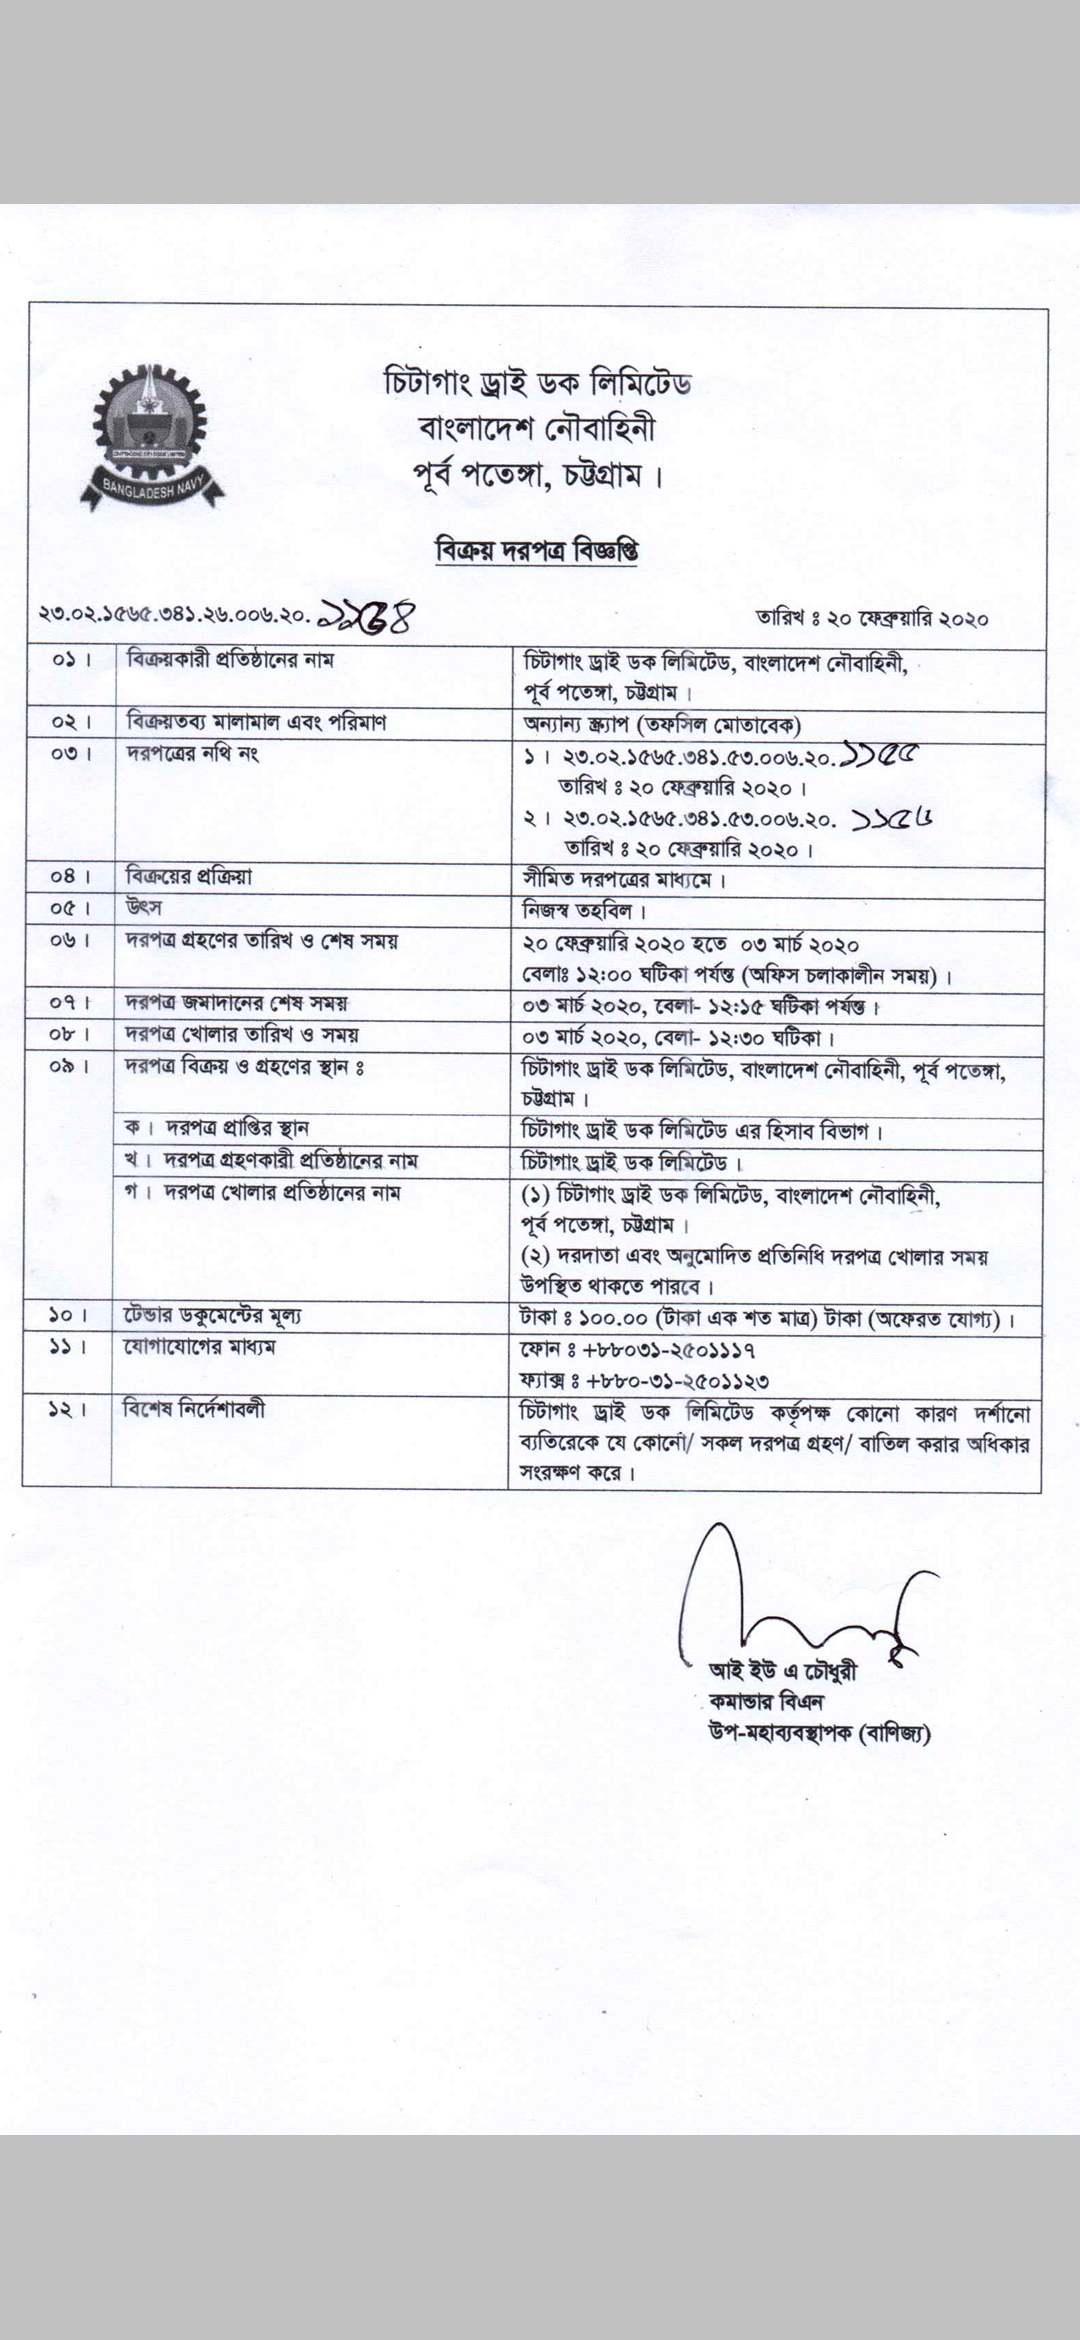 চিটাগাং ড্রাই ডক লিমিটেড
বাংলাদেশ নৌবাহিনী
পূর্ব পতেঙ্গা, চট্টগ্রাম।
BANGLADESH NAVY
বিক্রয় দরপত্র বিজ্ঞপ্তি
২৩.০২.১৫৬৫.৩৪১.২৬.০০৬.২০.
তারিখ ঃ ২০ ফেব্রুয়ারি ২০২০
০১। বিক্রয়কারী প্রতিষ্ঠানের নাম চিটাগাং ড্রাই ডক লিমিটেড, বাংলাদেশ নৌবাহিনী,
পূর্ব পতেঙ্গা, চট্টগ্রাম।
০২। বিক্রয়তব্য মালামাল এবং পরিমাণ অন্যান্য স্ক্র্যাপ (তফসিল মোতাবেক)
০৩। দরপত্রের নথি নং ১। ২৩.০২.১৫৬৫.৩৪১.৫৩.০০৬.২০.১১৫৫
তারিখ ঃ ২০ ফেব্রুয়ারি ২০২০।
২। ২৩.০২.১৫৬৫.৩৪১.৫৩.০০৬.২০. ১১৫৬
তারিখ ঃ ২০ ফেব্রুয়ারি ২০২০।
০৪। বিক্রয়ের প্রক্রিয়া সীমিত দরপত্রের মাধ্যমে।
০৫। উৎস নিজস্ব তহবিল।
০৬। দরপত্র গ্রহণের তারিখ ও শেষ সময় ২০ ফেব্রুয়ারি ২০২০ হতে ০৩ মার্চ ২০২০
বেলাঃ ১২ঃ০০ ঘটিকা পর্যন্ত (অফিস চলাকালীন সময়)।
০৭। দরপত্র জমাদানের শেষ সময় ০৩ মার্চ ২০২০, বেলা- ১২ঃ১৫ ঘটিকা পর্যন্ত।
০৮। দরপত্র খোলার তারিখ ও সময় ০৩ মার্চ ২০২০, বেলা- ১২ঃ৩০ ঘটিকা।
০৯। দরপত্র বিক্রয় ও গ্রহণের স্থান ঃ চিটাগাং ড্রাই ডক লিমিটেড, বাংলাদেশ নৌবাহিনী, পূর্ব পতেঙ্গা,
চট্টগ্রাম।
ক। দরপত্র প্রাপ্তির স্থান চিটাগাং ড্রাই ডক লিমিটেড এর হিসাব বিভাগ।
খ। দরপত্র গ্রহণকারী প্রতিষ্ঠানের নাম চিটাগাং ড্রাই ডক লিমিটেড।
গ। দরপত্র খোলার প্রতিষ্ঠানের নাম (১) চিটাগাং ড্রাই ডক লিমিটেড, বাংলাদেশ নৌবাহিনী,
পূর্ব পতেঙ্গা, চট্টগ্রাম।
(২) দরদাতা এবং অনুমোদিত প্রতিনিধি দরপত্র খোলার সময়
উপস্থিত থাকতে পারবে।
১০। টেন্ডার ডকুমেন্টের মূল্য টাকা ঃ ১০০.০০ (টাকা এক শত মাত্র) টাকা (অফেরত যোগ্য)।
১১। যোগাযোগের মাধ্যম ফোন ঃ +৮৮০৩১-২৫০১১১৭
ফ্যাক্স ঃ +৮৮০-৩১-২৫০১১২৩
১২। বিশেষ নির্দেশাবলী চিটাগাং ড্রাই ডক লিমিটেড কর্তৃপক্ষ কোনো কারণ দর্শানো
ব্যতিরেকে যে কোনো/ সকল দরপত্র গ্রহণ/ বাতিল করার অধিকার
সংরক্ষণ করে।
আই ইউ এ চৌধুরী
কমান্ডার বিএন
উপ-মহাব্যবস্থাপক (বাণিজ্য)